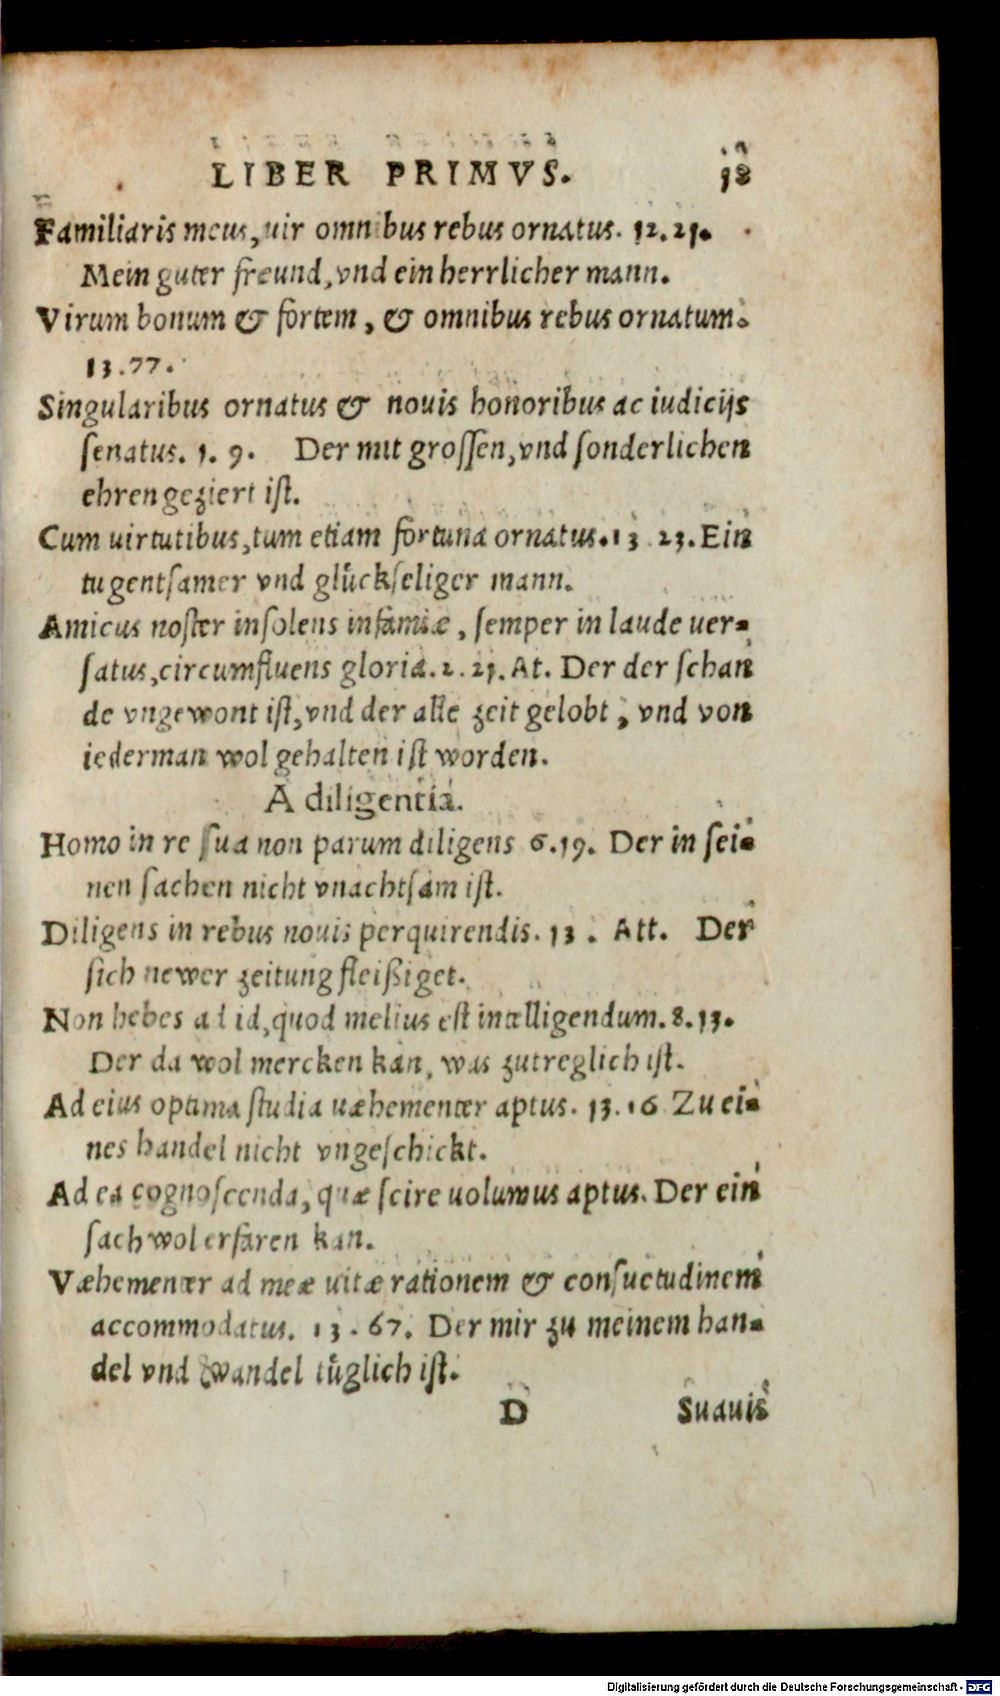 LIBER PRIMVS. 18
Familiaris meus, uir omnibus rebus ornatus. 12.21.
Mein guter freund, vnd ein herrlicher mann.
Virum bonum & fortem, & omnibus rebus ornatum.
13.77.
Singularibus ornatus & nouis honoribus ac iudicijs
ſenatus. 1. 9. Der mit groſſen, vnd ſonderlichen
ehren geziert iſt.
Cum uirtutibus, tum etiam fortuna ornatus. 13 23. Ein
tugentſamer vnd glůckſeliger mann.
Amicus noſter inſolens infamiæ, ſemper in laude uer-
ſatus, circumfluens gloria. 2. 21. At. Der der ſchan
de vngewont iſt, vnd der alle zeit gelobt, vnd von
iederman wol gehalten iſt worden.
A diligentia.
Homo in re ſua non parum diligens 6.19. Der in ſei-
nen ſachen nicht vnachtſam iſt.
Diligens in rebus nouis perquirendis. 13. Att. Der
ſich newer zeitung fleißiget.
Non hebes ad id, quod melius eſt intelligendum. 8.13.
Der da wol mercken kan, was zutreglich iſt.
Ad eius optima ſtudia uæhementer aptus. 13.16 Zu ei-
nes handel nicht vngeſchickt.
Ad ea cognoſcenda, quæ ſcire uolumus aptus. Der ein
ſach wol erfaren kan.
Væhementer ad meæ uitæ rationem & conſuetudinem
accommodatus. 13. 67. Der mir zu meinem han-
del vnd wandel tůglich iſt.
D Suauis
Digitalisierung gefördert durch die Deutsche Forschungsgemeinschaft - DFG